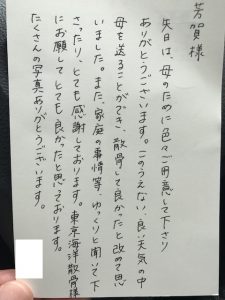 芳賀様
先日は、母のために色々ご用意して下さり
ありがとうございます。このうえない良い天気の中
母を送ることができ、散骨して良かったと改めて思
いました。また、家庭の事情等ゆっくりと聞いて下
さったり、とても感謝しております。東京海洋散骨様
にお願いしてとても良かったと思えております。
たくさんの写真ありがとうございます。